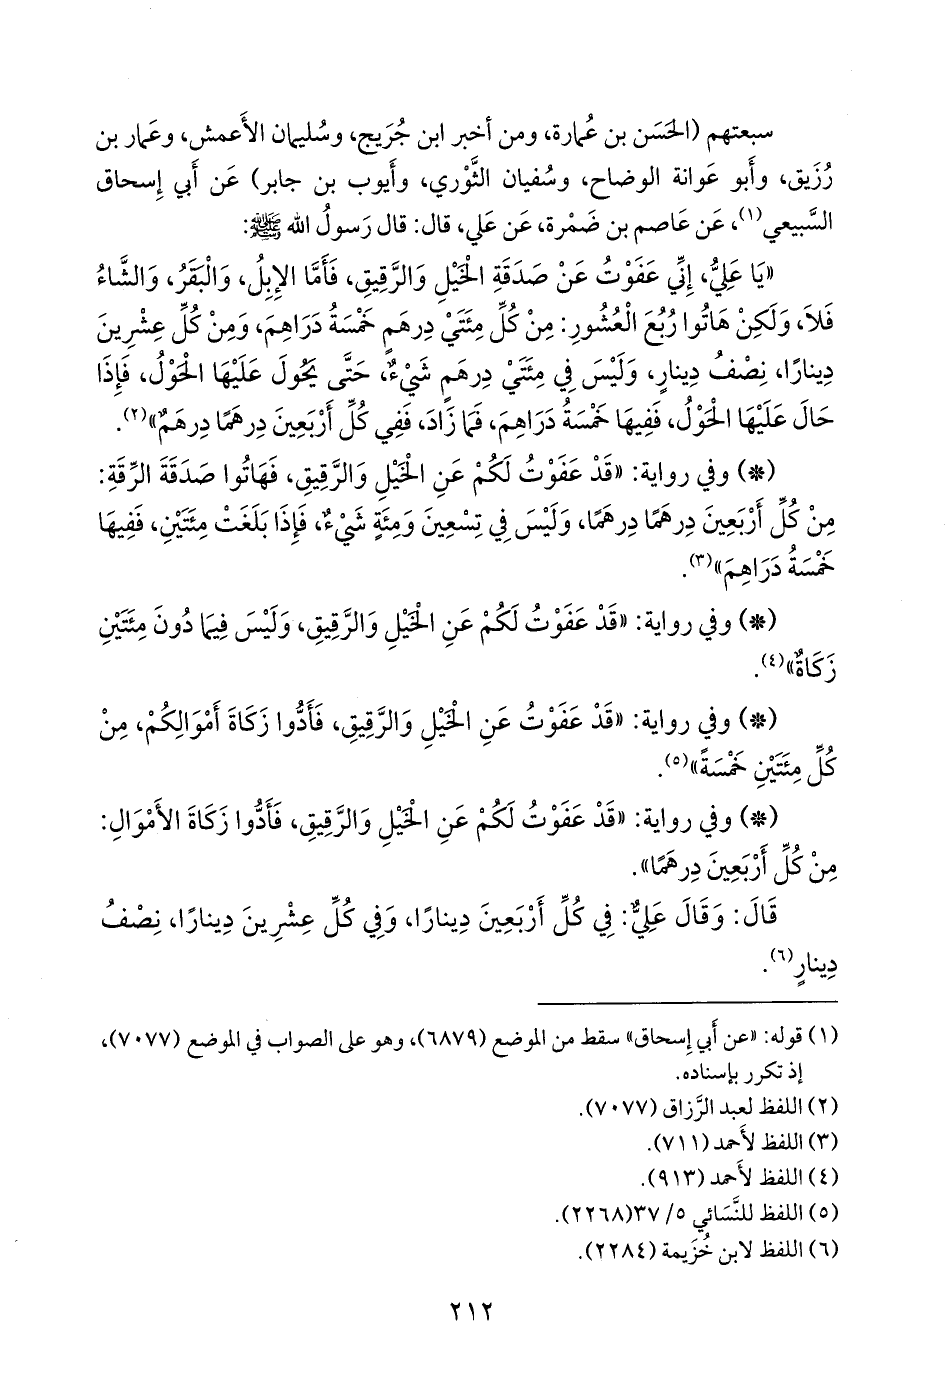 سبعتهم (الحَسَن بن عُمارة، ومن أخبر ابن جُرَيج، وسُليمان الأَعمش، وعَمار بن
رُزَيق، وأَبو عَوانة الوضاح، وسُفيان الثَّوْري، وأَيوب بن جابر) عَن أَبي إِسحاق
السَّبيعي(١)، عَن عَاصم بن ضَمْرة، عَن عَلي، قال: قال رَسولُ الله ﷺ:
«يَا عَلِيُّ، إِنِّي عَفَوْتُ عَنْ صَدَقَةِ الْخَيْلِ وَالرَّقِيقِ، فَأَمَّا الإِبِلُ، وَالْبَقَرُ، وَالشَّاءُ
فَلاَ، وَلَكِنْ هَاتُوا رُبُعَ الْعُشُورِ: مِنْ كُلِّ مِئَتَيْ دِرهَمٍ خَمْسَةُ دَرَاهِمَ، وَمِنْ كُلِّ عِشْرِينَ
دِينَارًا، نِصْفُ دِينارٍ، وَلَيْسَ فِي مِئَتَيْ دِرهَمٍ شَيْءٌ، حَتَّى يَحُولَ عَلَيْهَا الْحَوْلُ، فَإِذَا
حَالَ عَلَيْهَا الْحَوْلُ، فَفِيهَا خَمْسَةُ دَرَاهِمَ، فَمَا زَادَ، فَفِي كُلِّ أَرْبَعِينَ دِرهَمًا دِرهَمٌ»(٢).
(*) وفي رواية: «قَدْ عَفَوْتُ لَكُمْ عَنِ الْخَيْلِ وَالرَّقِيقِ، فَهَاتُوا صَدَقَةَ الرِّقَةِ:
مِنْ كُلِّ أَرْبَعِينَ دِرهَمًا دِرهَمًا، وَلَيْسَ فِي تِسْعِينَ وَمِئَةٍ شَيْءٌ، فَإِذَا بَلَغَتْ مِئَتَيْنِ، فَفِيهَا
خَمْسَةُ دَرَاهِمَ»(٣).
(*) وفي رواية: «قَدْ عَفَوْتُ لَكُمْ عَنِ الْخَيْلِ وَالرَّقِيقِ، وَلَيْسَ فِيمَا دُونَ مِئَتَيْنِ
زَكَاةٌ»(٤).
(*) وفي رواية: «قَدْ عَفَوْتُ عَنِ الْخَيْلِ وَالرَّقِيقِ، فَأَدُّوا زَكَاةَ أَمْوَالِكُمْ، مِنْ
كُلِّ مِئَتَيْنِ خَمْسَةً»(٥).
(*) وفي رواية: «قَدْ عَفَوْتُ لَكُمْ عَنِ الْخَيْلِ وَالرَّقِيقِ، فَأَدُّوا زَكَاةَ الأَمْوَالِ:
مِنْ كُلِّ أَرْبَعِينَ دِرهَمًا».
قَالَ: وَقَالَ عَلِيٌّ: فِي كُلِّ أَرْبَعِينَ دِينارًا، وَفِي كُلِّ عِشْرِينَ دِينارًا، نِصْفُ
دِينارٍ(٦).
(١) قوله: «عن أَبي إِسحاق» سقط من الموضع (٦٨٧٩)، وهو على الصواب في الموضع (٧٠٧٧)،
إذ تكرر بإسناده.
(٢) اللفظ لعبد الرَّزاق (٧٠٧٧).
(٣) اللفظ لأَحمد (٧١١).
(٤) اللفظ لأَحمد (٩١٣).
(٥) اللفظ للنَّسَائي ٥/ ٣٧(٢٢٦٨).
(٦) اللفظ لابن خُزَيمة (٢٢٨٤).
٢١٢